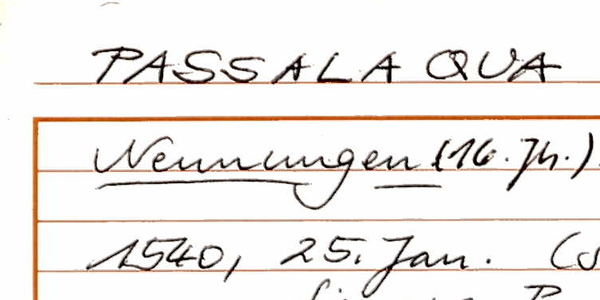 PASSALAQUA
Nennungen (16. Jh.)
1540, 25. Jan.